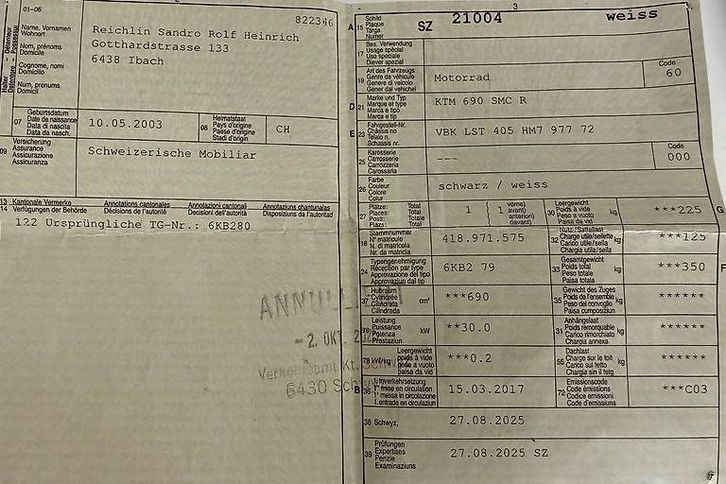 01-06
822346
Name, Vornamen
Wohnort
Nom, prénoms
Domicile
Cognome, nomi
Domicilio
Num, prenums
Domicil
Reichlin Sandro Rolf Heinrich
Gotthardstrasse 133
6438 Ibach
07 Geburtsdatum
Date de naissance
Data di nascita
Data da nasch.
10.05.2003
08 Heimatstaat
Pays d'origine
Paese d'origine
Stadi d'origin
CH
09 Versicherung
Assurance
Assicurazione
Assicuranza
Schweizerische Mobiliar
13 Kantonale Vermerke
Annotations cantonales
Annotazioni cantonali
Annotaziuns chantunalas
14 Verfügungen der Behörde
Décisions de l'autorité
Decisioni dell'autorità
Disposiziuns da l'autoritad
122 Ursprüngliche TG-Nr.: 6KB280
3
A 15 Schild
Plaque
Targa
Numer
SZ 21004 weiss
17 Bes. Verwendung
Usage spécial
Uso speciale
Diever spezial
19 Art des Fahrzeugs
Genre de véhicule
Genere di veicolo
Gener dal vehichel
Motorrad
Code
60
D 21 Marke und Typ
Marque et type
Marca e tipo
Marca e tip
KTM 690 SMC R
E 23 Fahrgestell-Nr.
Châssis no
Telaio n.
Schassis nr.
VBK LST 405 HM7 977 72
25 Karosserie
Carrosserie
Carrozzeria
Carossaria
---
Code
000
26 Farbe
Couleur
Colore
Colur
schwarz / weiss
27 Plätze: Total
Places: Total
Posti: Totale
Plazs: Total
1 ( 1 vorne)
avant)
anteriori)
davant)
30 Leergewicht
Poids à vide
Peso a vuoto
Paisa da vid
kg
***225
G
18 Stammnummer
N° matricule
N. di matricola
Nr. da matricla
418.971.575
32 Nutz-/Sattellast
Charge utile/sellette
Carico utile/sella
Chargia utila/sella
kg
***125
24 Typengenehmigung
Réception par type
Approvazione del tipo
Approvaziun dal tip
6KB2 79
33 Gesamtgewicht
Poids total
Peso totale
Paisa totala
kg
***350
F
37 Hubraum
Cylindrée
Cilindrata
Cilindrada
cm³
***690
35 Gewicht des Zuges
Poids de l'ensemble
Peso del convoglio
Paisa cumposiziun
kg
******
76 Leistung
Puissance
Potenza
Prestaziun
kW
**30.0
31 Anhängelast
Poids remorquable
Carico rimorchiato
Chargia annexa
kg
******
78 kW/kg
Leergewicht
poids à vide
peso a vuoto
paisa da vid
***0.2
55 Dachlast
Charge sur le toit
Carico sul tetto
Chargia sin il tetg
kg
******
B 36 1. Inverkehrsetzung
1re mise en circulation
1. messa in circolazione
1. entrada en circulaziun
15.03.2017
72 Emissionscode
Code émissions
Codice emissioni
Code d'emissiuns
***C03
38 Schwyz,
27.08.2025
39 Prüfungen
Expertises
Perizie
Examinaziuns
27.08.2025 SZ
- 2. OKT.
6430